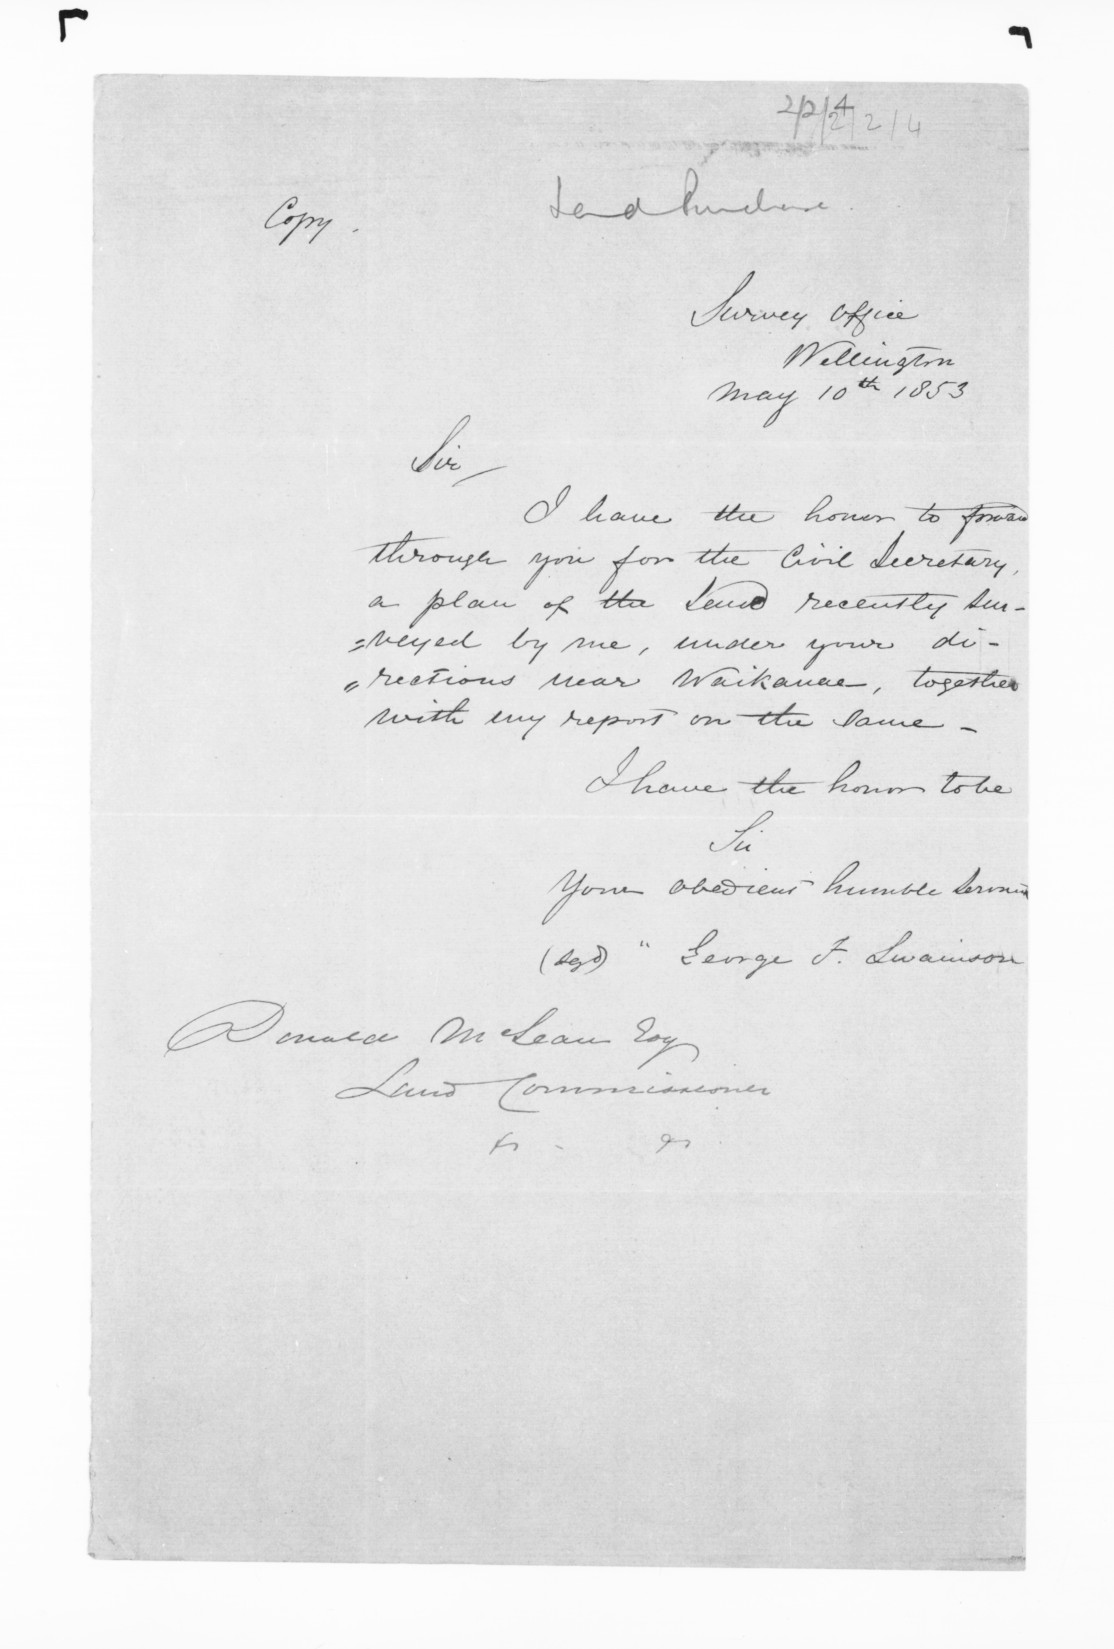 2/2/4
2/2/4
Land Purchase.
Copy.
Survey Office
Wellington
May 10th 1853
Sir
I have the honor to forward
through you for the Civil Secretary,
a plan of the Land recently sur-
=veyed by me, under your di-
"rections near Waikanae, together
with my report on the same -
I have the honor to be
Sir
Your obedient humble Servant
(sgd) " George F. Swainson
Donald McLean Esq
Land Commissioner